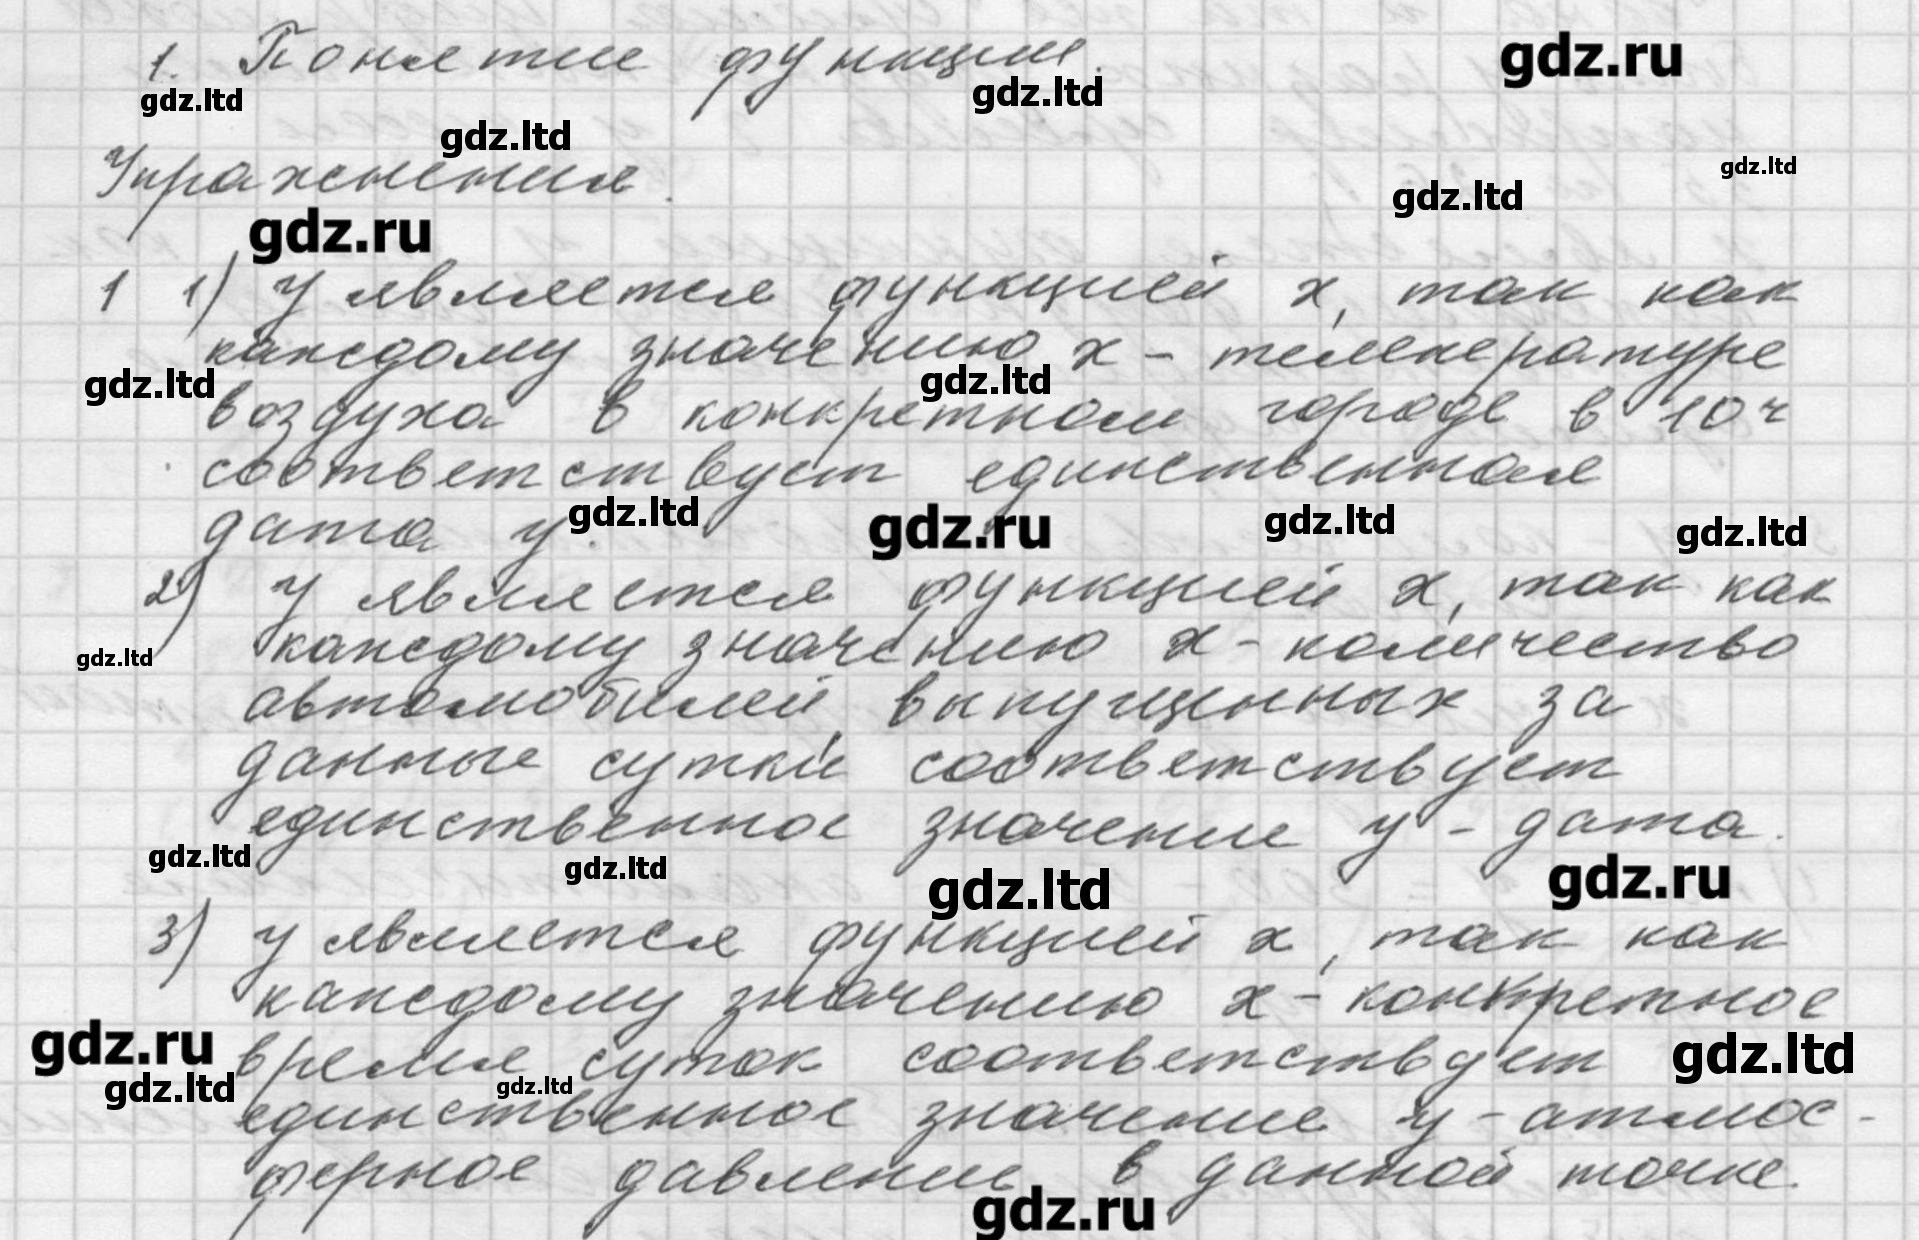 1. Понятие функции.
gdz.ru
gdz.ltd
gdz.ltd
gdz.ltd
Упражнения.
gdz.ltd
gdz.ltd
gdz.ru
1 1) у является функцией х, так как
каждому значению х - температуре
gdz.ltd
gdz.ltd
воздуха в конкретном городе в 10 ч
соответствует единственная
дата у.
gdz.ltd
gdz.ru
gdz.ltd
gdz.ltd
2) у является функцией х, так как
каждому значению х - количество
gdz.ltd
автомобилей, выпущенных за
данные сутки соответствует
единственное значение у - дата.
gdz.ltd
gdz.ltd
gdz.ltd
gdz.ru
3) у является функцией х, так как
каждому значению х - конкретное
gdz.ru
время суток соответствует
gdz.ltd
gdz.ltd
gdz.ltd
единственное значение у - атмос-
ферное давление в данной точке.
gdz.ru